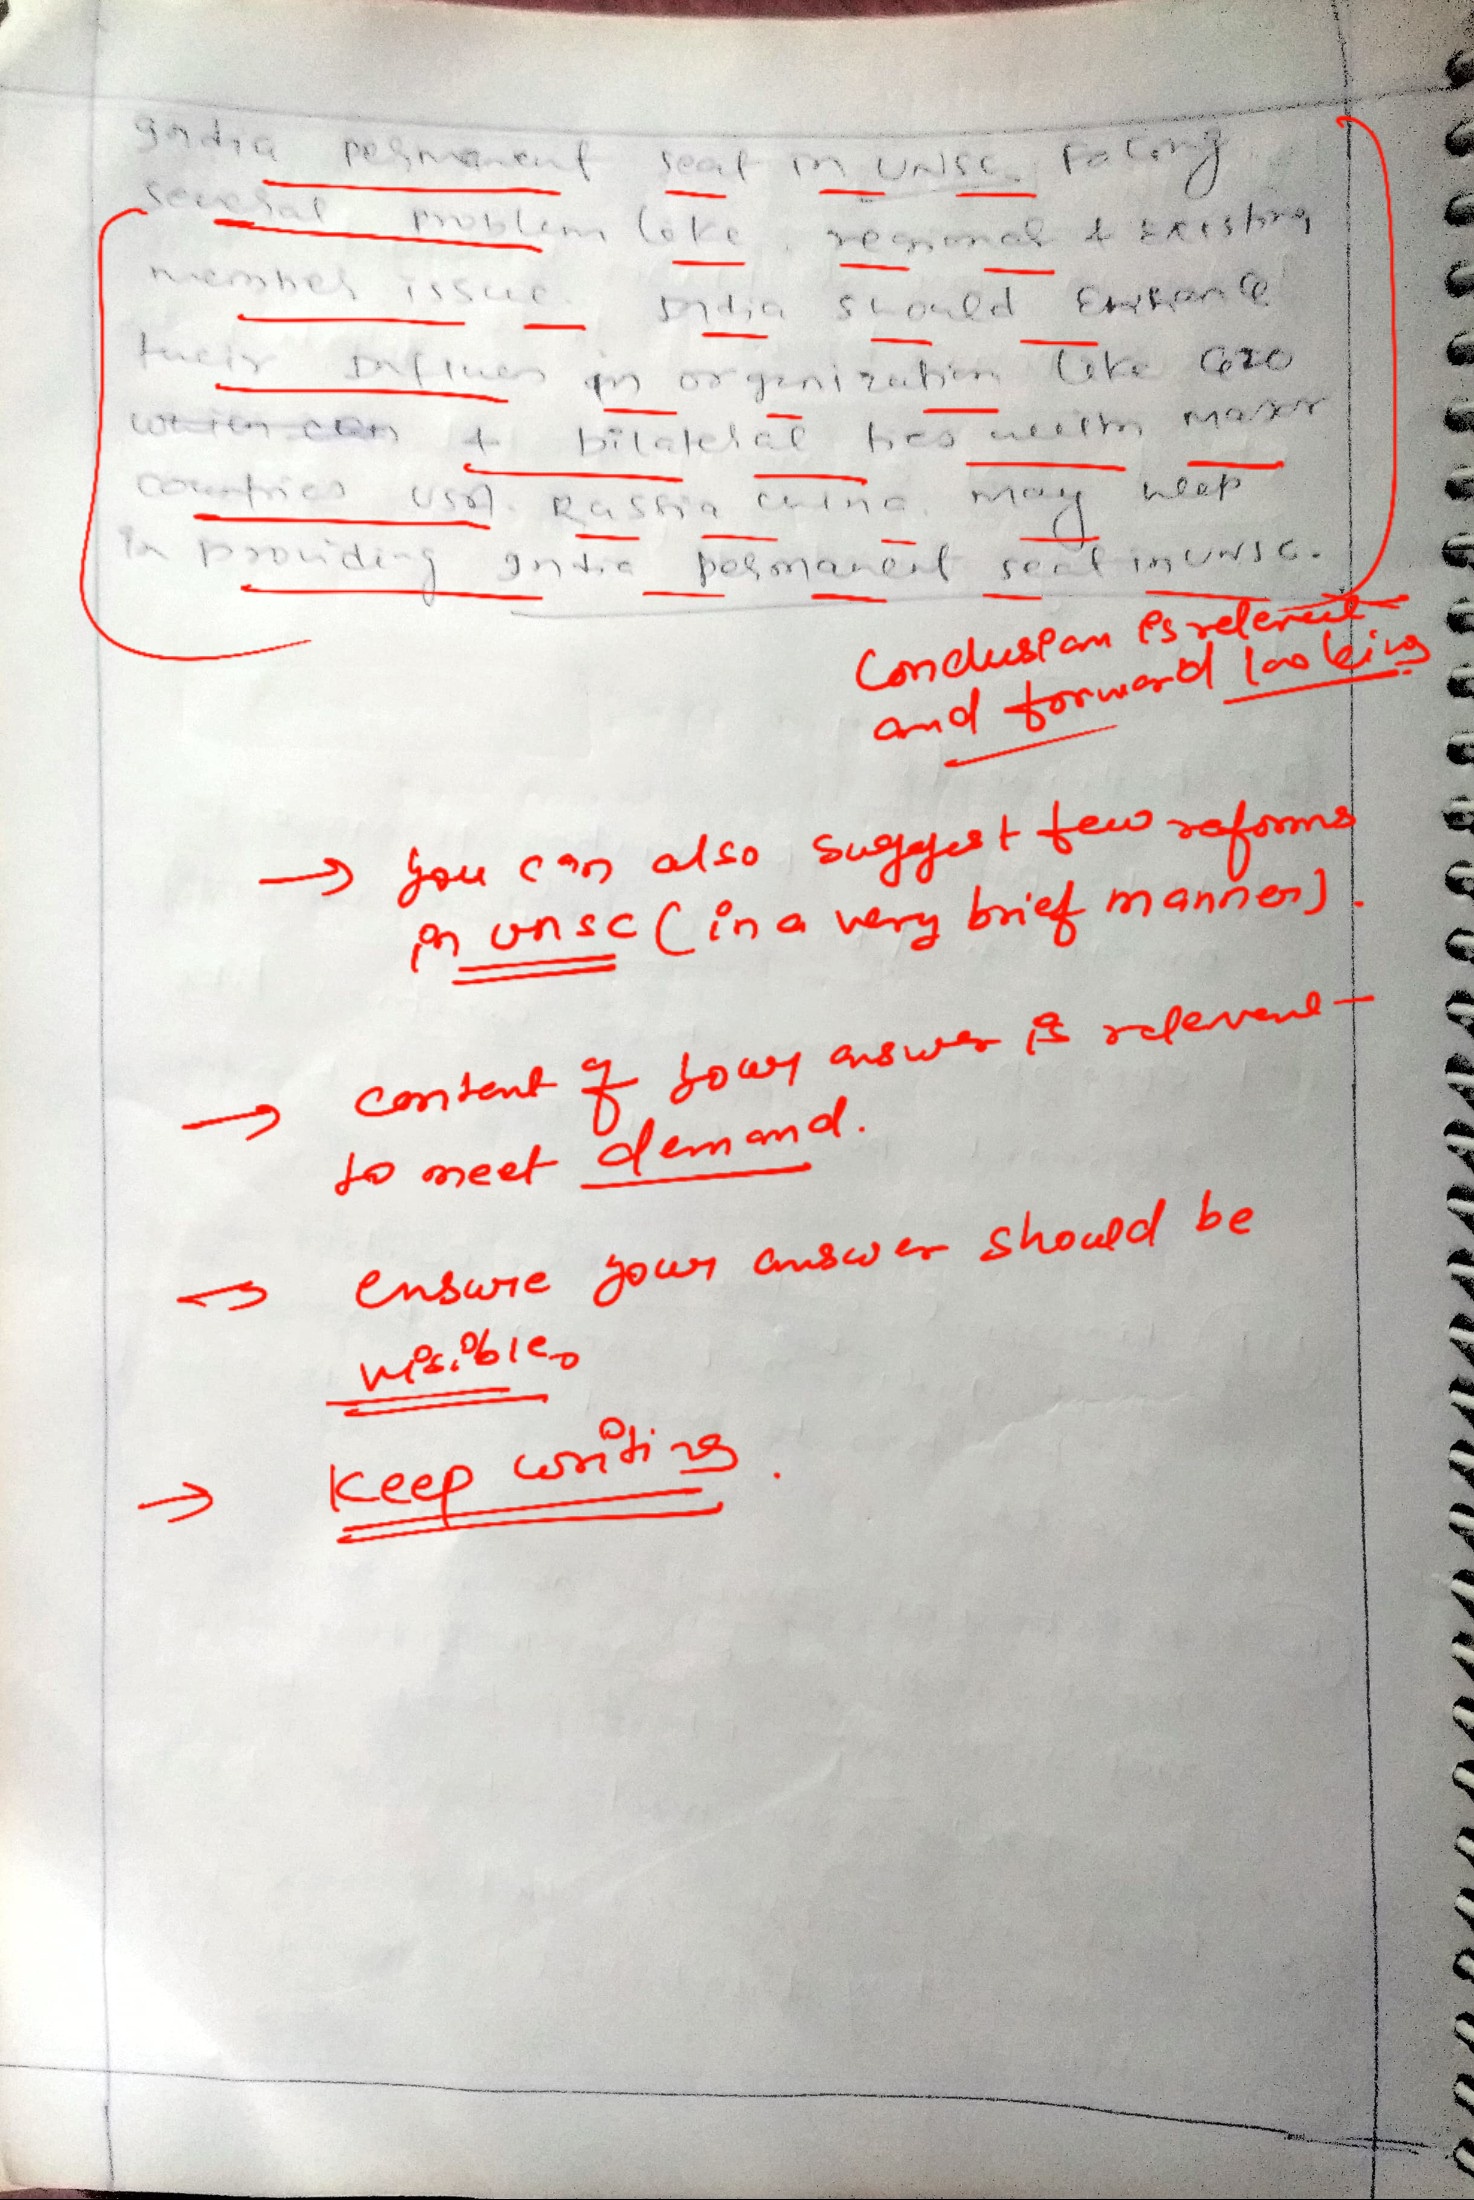 India permanent seat in UNSC. Facing
several problem like, regional & Existing
member issue. India should Enhance
their Influen in organization like G20
which can & bilateral ties with
countries USA. Russia China. may help
in providing India permanent seat in UNSC.
Conclusion is relevent
and forward looking
→ you can also suggest few reforms
in UNSC (in a very brief manner).
→ content of your answer is relevent
to meet demand.
→ ensure your answer should be
visible.
→ Keep writing.